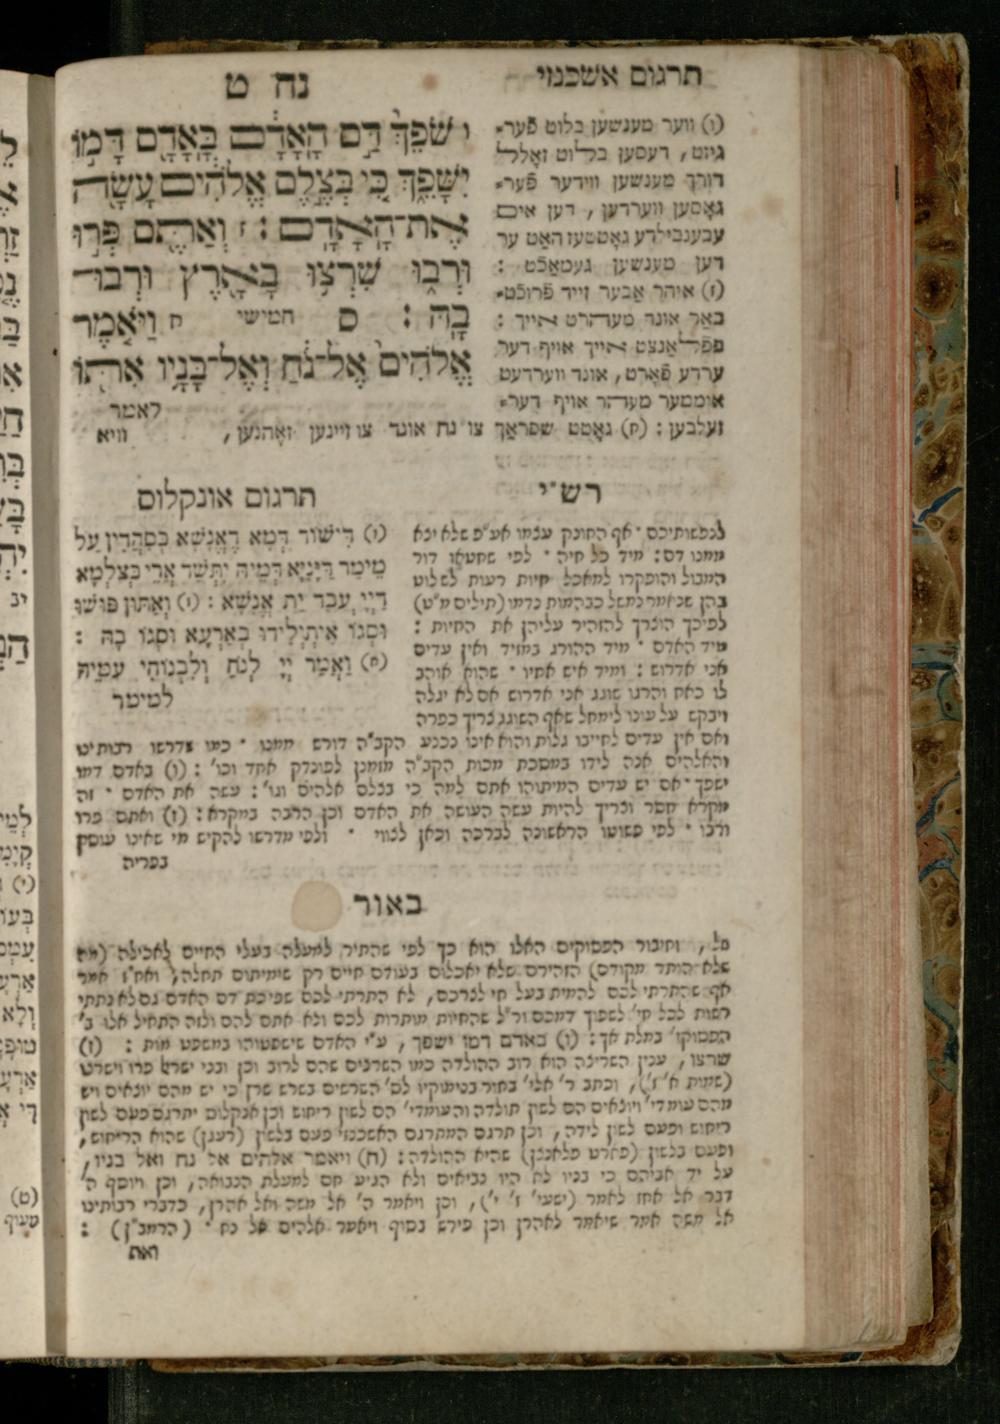 תרגום אשכנזי
נח ט
ו שֹׁפֵךְ֙ דַּ֣ם הָֽאָדָ֔ם בָּֽאָדָ֖ם דָּמ֣וֹ
יִשָּׁפֵ֑ךְ כִּ֚י בְּצֶ֣לֶם אֱלֹהִ֔ים עָשָׂ֖ה
אֶת־הָֽאָדָֽם׃ ז וְאַתֶּ֖ם פְּר֣וּ
וּרְב֑וּ שִׁרְצ֥וּ בָאָ֖רֶץ וּרְבוּ־
בָֽהּ׃ ס חמישי ח וַיֹּ֤אמֶר
אֱלֹהִים֙ אֶל־נֹ֔חַ וְאֶל־בָּנָ֥יו אִתּ֖וֹ
לאמר
(ו) ווער מענשען בלוט פֿער־
גיזט, דעסען בלוט זאָלל
דורך מענשען ווידער פֿער־
גאָסען ווערדען, דען אים
עבענבילדע גאָטטעז האַט ער
דען מענשען געמאַכֿט :
(ז) איהר אַבער זייד פֿרוכֿט־
באַר אונד מעהרט אייך :
פפֿלאַנצט אייך אויף דער
ערדע פֿאָרט, אונד ווערדעט
אימטער מעהר אויף דער־
זעלבען : (ח) גאָטט שפראַך צו נח אונד צו זיינען זאָהנען,
וויא
רש״י
לנפשותיכם · אף החונק עצמו אע״פ שלא יצא
ממנו דם: מיד כל חיה · לפי שחטאו דור
המבול והופקרו למאכל חיות רעות לשלוט
בהן שנאמר נמשל כבהמות נדמו (תילים מ״ט)
לפיכך הוצרך להזהיר עליהן את החיות :
מיד האדם · מיד ההורג במזיד ואין עדים
אני אדרוש : ומיד איש אחיו · שהוא אוהב
לו כאח והרגו שוגג אני אדרוש אם לא יגלה
ויבקש על עונו לימחל שאף השוגג צריך כפרה
ואם אין עדים לחייבו גלות והוא אינו נכנע הקב״ה דורש ממנו · כמו שדרשו רבותינו
והאלהים אנה לידו במסכת מכות הקב״ה מזמנן לפונדק אחד וכו׳ : (ו) באדם דמו
ישפך · אם יש עדים המיתוהו אתם למה כי בצלם אלהים וגו׳ : עשה את האדם · זה
מקרא חסר וצריך להיות עשה העושה את האדם וכן הרבה במקרא : (ז) ואתם פרו
ורבו · לפי פשוטו הראשונה לברכה וכאן לצווי · ולפי מדרשו להקיש מי שאינו עוסק
בפריה
תרגום אונקלוס
(ו) דְּיֵשׁוֹד דְּמָא דֶאֱנָשָׁא בְּסַהֲדִין עַל
מֵימַר דַּיָּנַיָּא דְּמֵיהּ יִתְּשַׁד אֲרֵי בְּצַלְמָא
דַיְיָ עֲבַד יַת אֱנָשָׁא : (ז) וְאַתּוּן פּוּשׁוּ
וּסְגוֹ אִיתְיְלִידוּ בְאַרְעָא וּסְגוֹ בָהּ :
(ח) וַאֲמַר יְיָ לְנֹחַ וְלִבְנוֹהִי עִמֵּיהּ
למימר
באור
כל, וחיבור הפסוקים האלו הוא כך לפי שהתיר למעלה בעלי החיים לאכילה (מה
שלא הותר מקודם) הזהירם שלא יאכלום בעודם חיים רק שימיתום תחלה, ואח״ז אמר
אף שהתרתי לכם להמית בעל חי לצרככם, לא התרתי לכם שפיכת דם האדם גם לא נתתי
רשות לכל חי׳ לשפוך דמכם ור״ל שהחיות מותרות לכם ולא אתם להם ולזה התחיל אלו ב׳
הפסוקי׳ במלת אך : (ו) באדם דמו ישפך, ע״י האדם שישפטוהו במשפט מות : (ז)
שרצו, ענין השריצה הוא רוב ההולדה כמו השרצים שהם לרוב וכן ובני ישראל פרו וישרצו
(שמות א׳ ז׳), וכתב ר׳ אלי׳ בחור
מהם עומדי׳ ויוצאים הם לשון תולדה והעומדי׳ הם לשון ריחוש וכן אנקלוס יתרגם פעם לשון
ריחוש ופעם לשון לידה, וכן תרגם המתרגם האשכנזי פעם בלשון (רעגן) שהוא הריחוש,
ופעם בלשון (פֿארט פלאנצן) שהיא ההולדה : (ח) ויאמר אלהים אל נח ואל בניו,
על יד אביהם כי בניו לא היו נביאים ולא הגיע חם למעלת הנבואה, וכן ויוסף ה׳
דבר אל אחז לאמר (ישעי׳ ז׳ י׳), וכן ויאמר ה׳ אל משה ואל אהרן, כדברי רבותינו
אל משה אמר שיאמר לאהרן וכן פירש בסוף ויאמר אלהים אל נח · (הרמב״ן) :
זאת